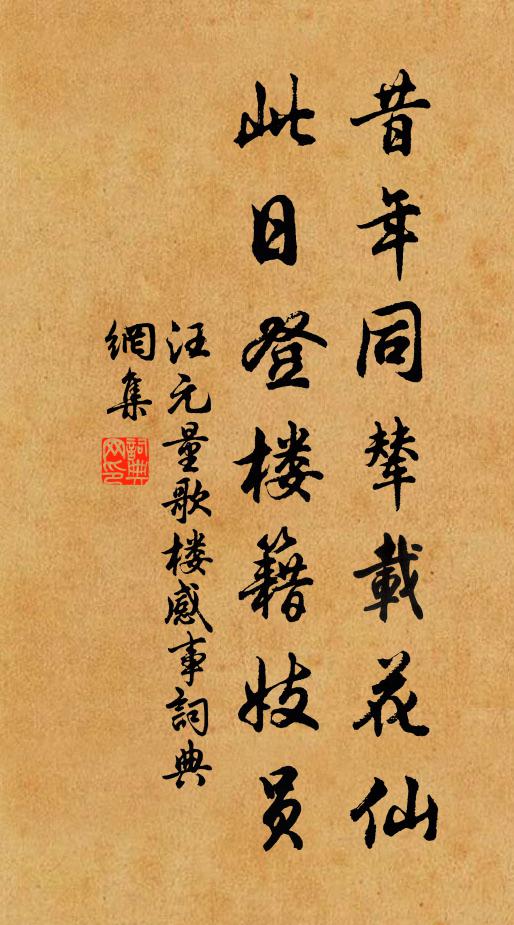 昔年同辇載花仙
此日登楼籍妓员
汪元量歌楼感事詞典
網集
詞典
网印